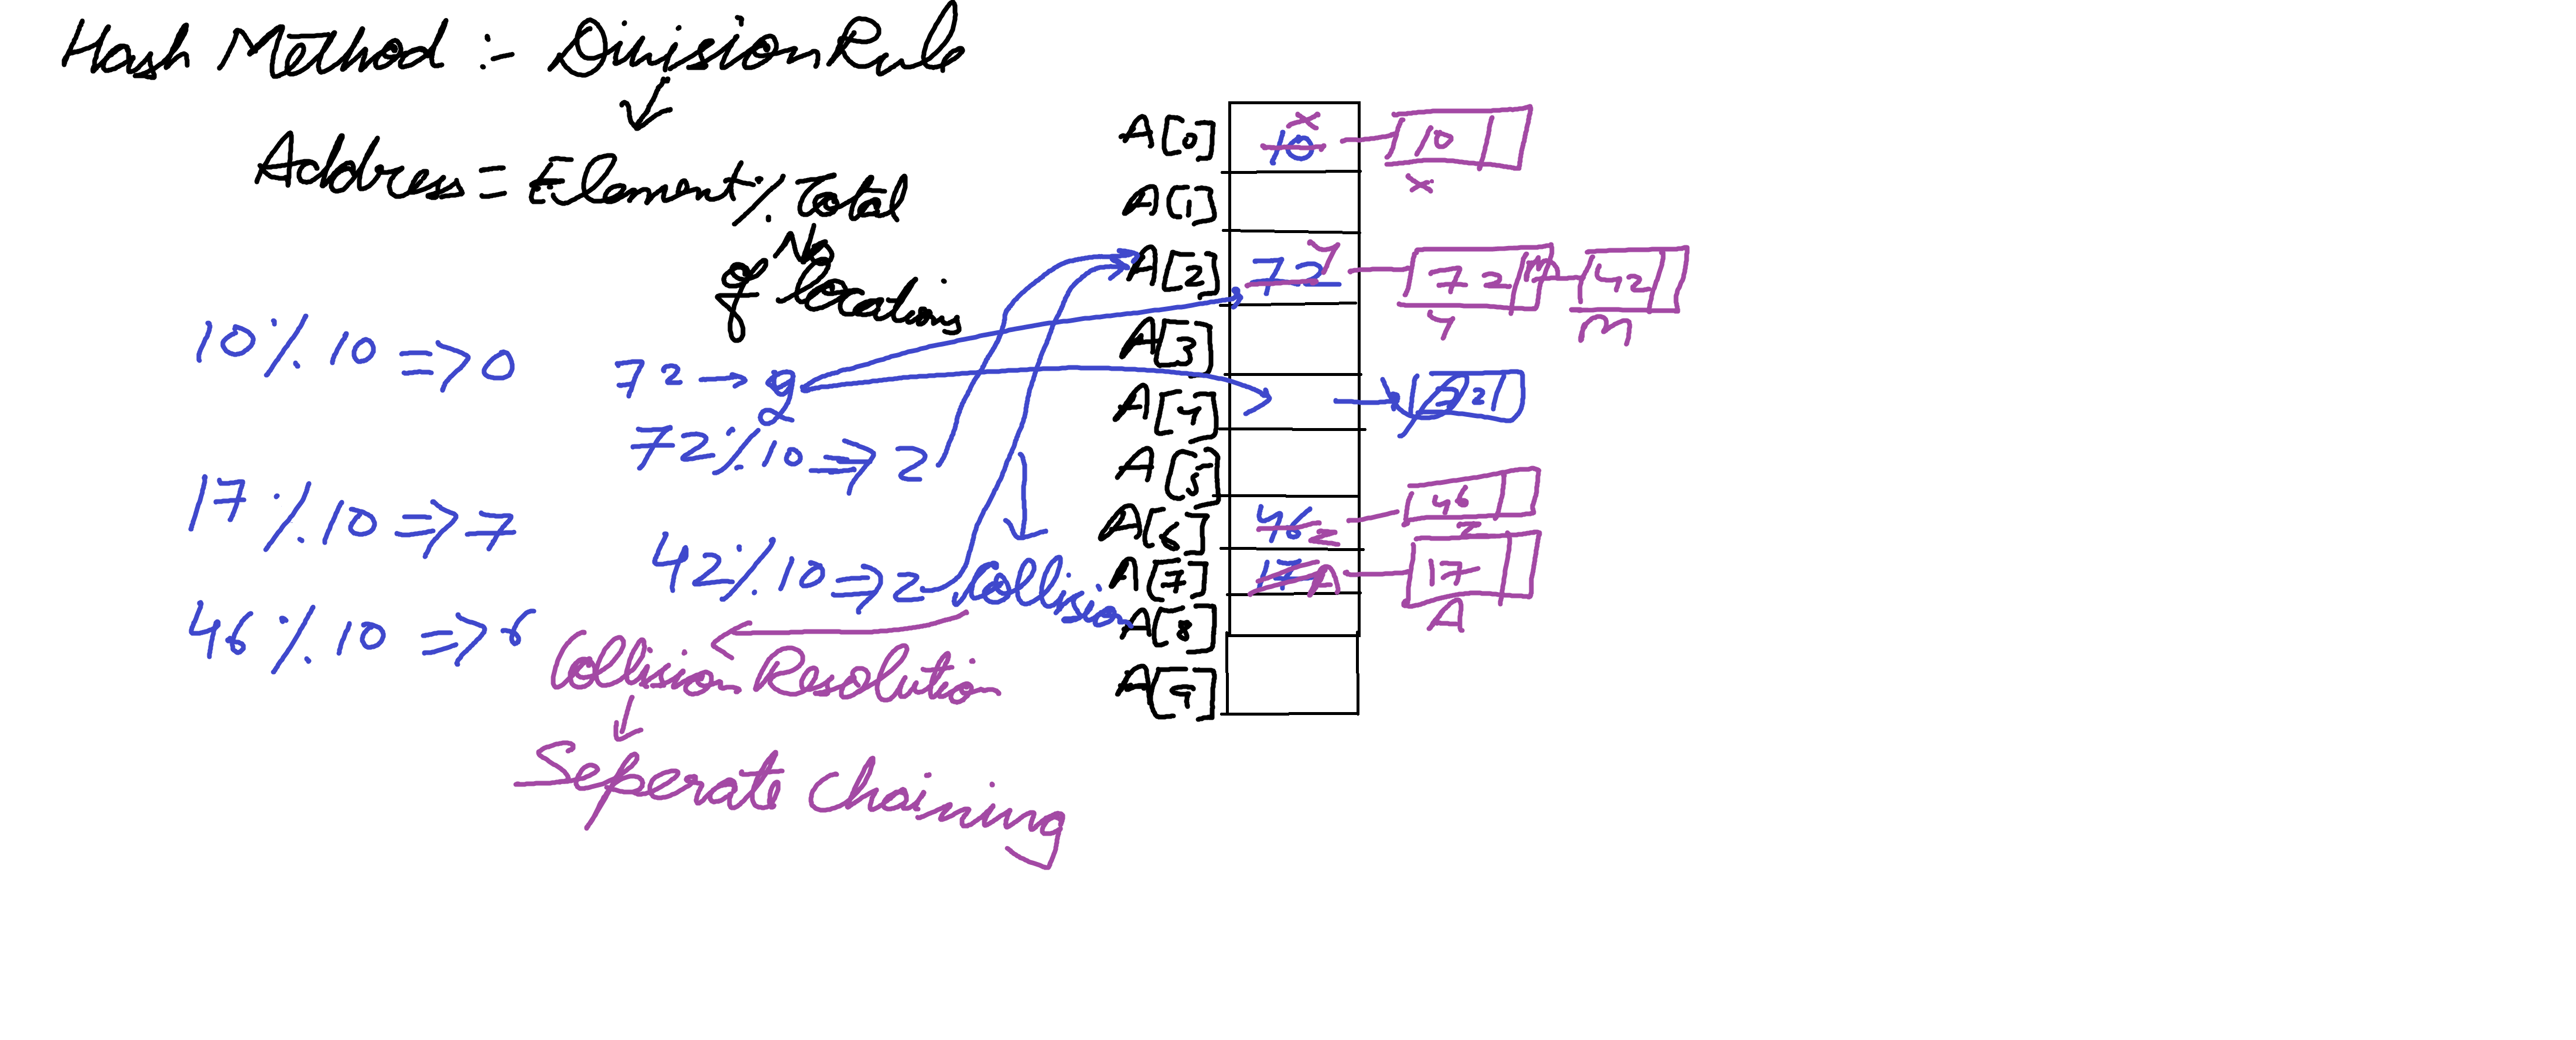 Hash Method :- Division Rule
Address = Element % Total
No
of locations
10 % 10 => 0
72 → 9
2
72 % 10 => 2
17 % 10 => 7
42 % 10 => 2
Collision
46 % 10 => 6
Collision Resolution
Seperate Chaining
A[0] 10 x 10
x
A[1]
A[2] 72 y 72 m 42
y m
A[3]
A[4]
A[5]
A[6] 46 z 46
z
A[7] 17 A 17
A
A[8]
A[9]